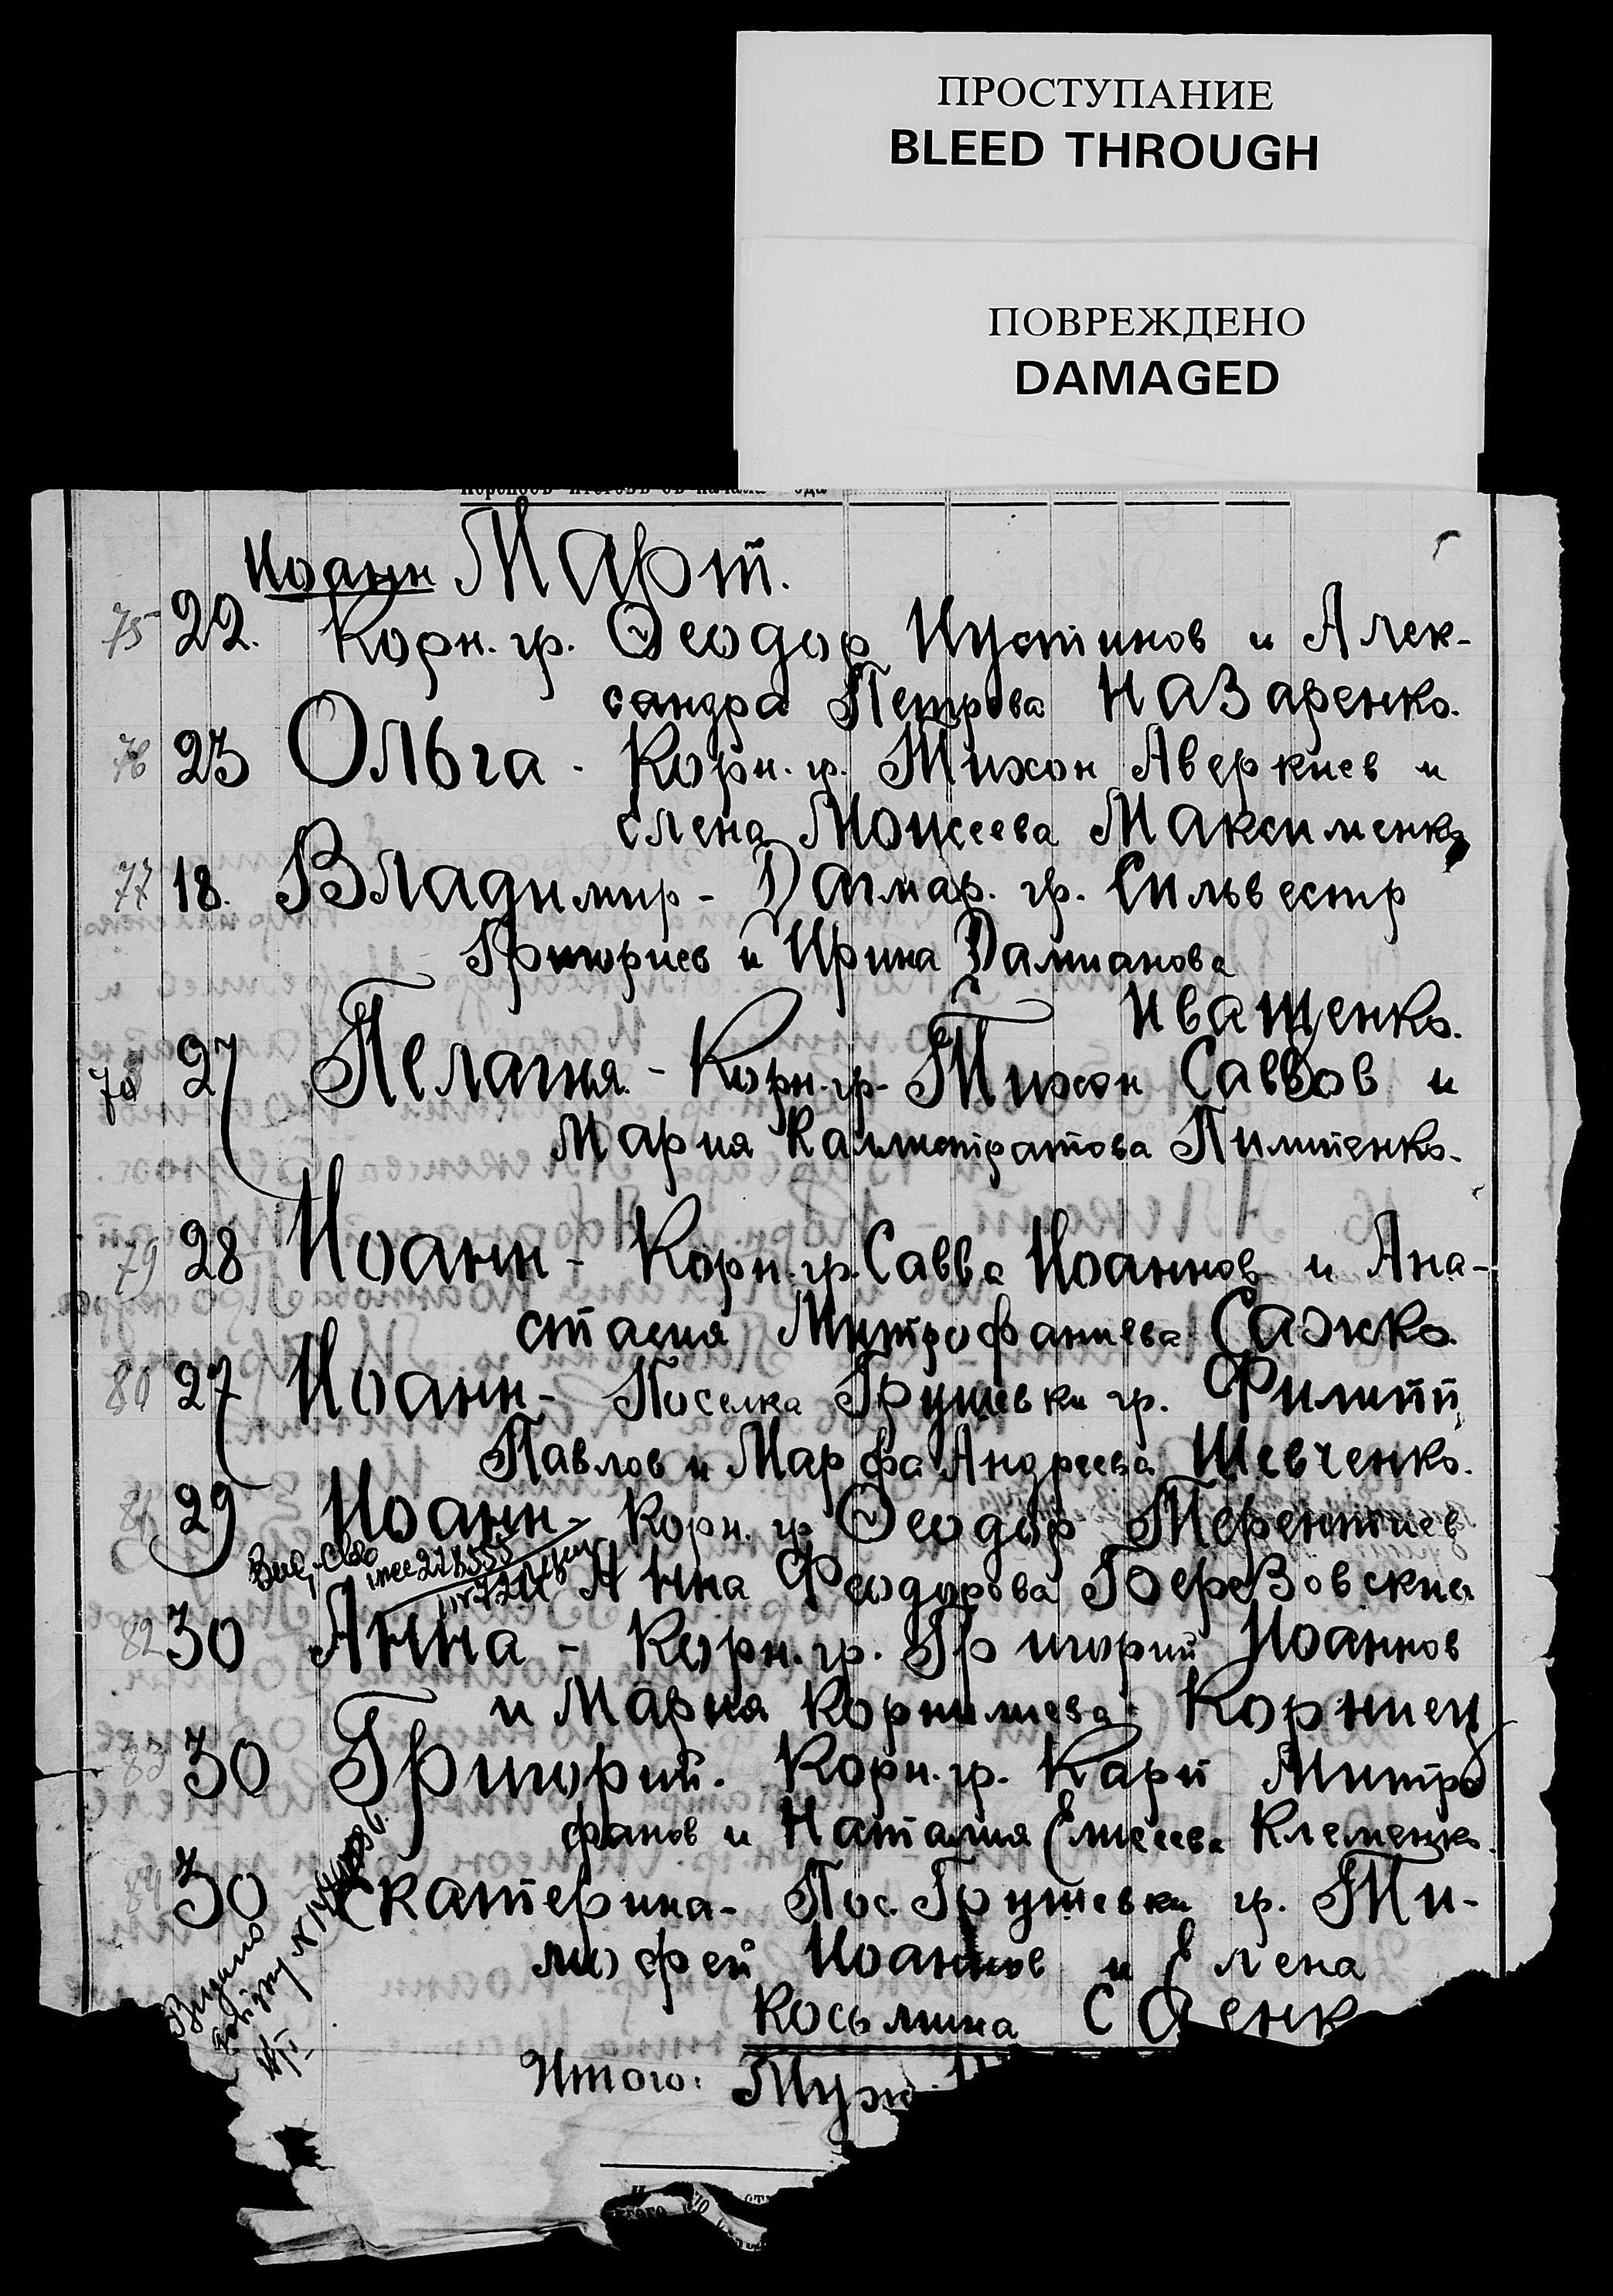 ПРОСТУПАНИЕ
BLEED THROUGH
ПОВРЕЖДЕНО
DAMAGED
Иоанн Март.
75 22. Корн. гр. Ѳеодор Иустинов и Алек-
сандра Петрова Назаренко.
76 23 Ольга - Корн. гр. Тихон Аверкиев и
Елена Моисеева Максименко
77 18. Владимир - Дагмар. гр. Сильвестр
Григориев и Ирина Дамианова
Иващенко.
78 27 Пелагия - Корн. гр. Тихон Саввов и
Мария Калистратова Пилипенко.
79 28 Иоанн - Корн. гр. Савва Иоаннов и Ана-
стасия Митрофаниева Сажко.
80 27 Иоанн - Поселка Грушевки гр. Филипп
Павлов и Марфа Андреева Шевченко.
81 29 Иоанн - Корн. гр Ѳеодор Терентиев
и Анна Феодорова Березовские
82 30 Анна - Корн. гр. Григорий Иоаннов
и Мария Корнилиева Корниец
83 30 Григорий. Корн. гр. Карп Митро
фанов и Наталия Елисеева Клеменко.
84 30 Екатерина - Пос. Грушевки гр. Ти-
мофей Иоаннов и Елена
Косьмина Саенк
Итого: Муж.